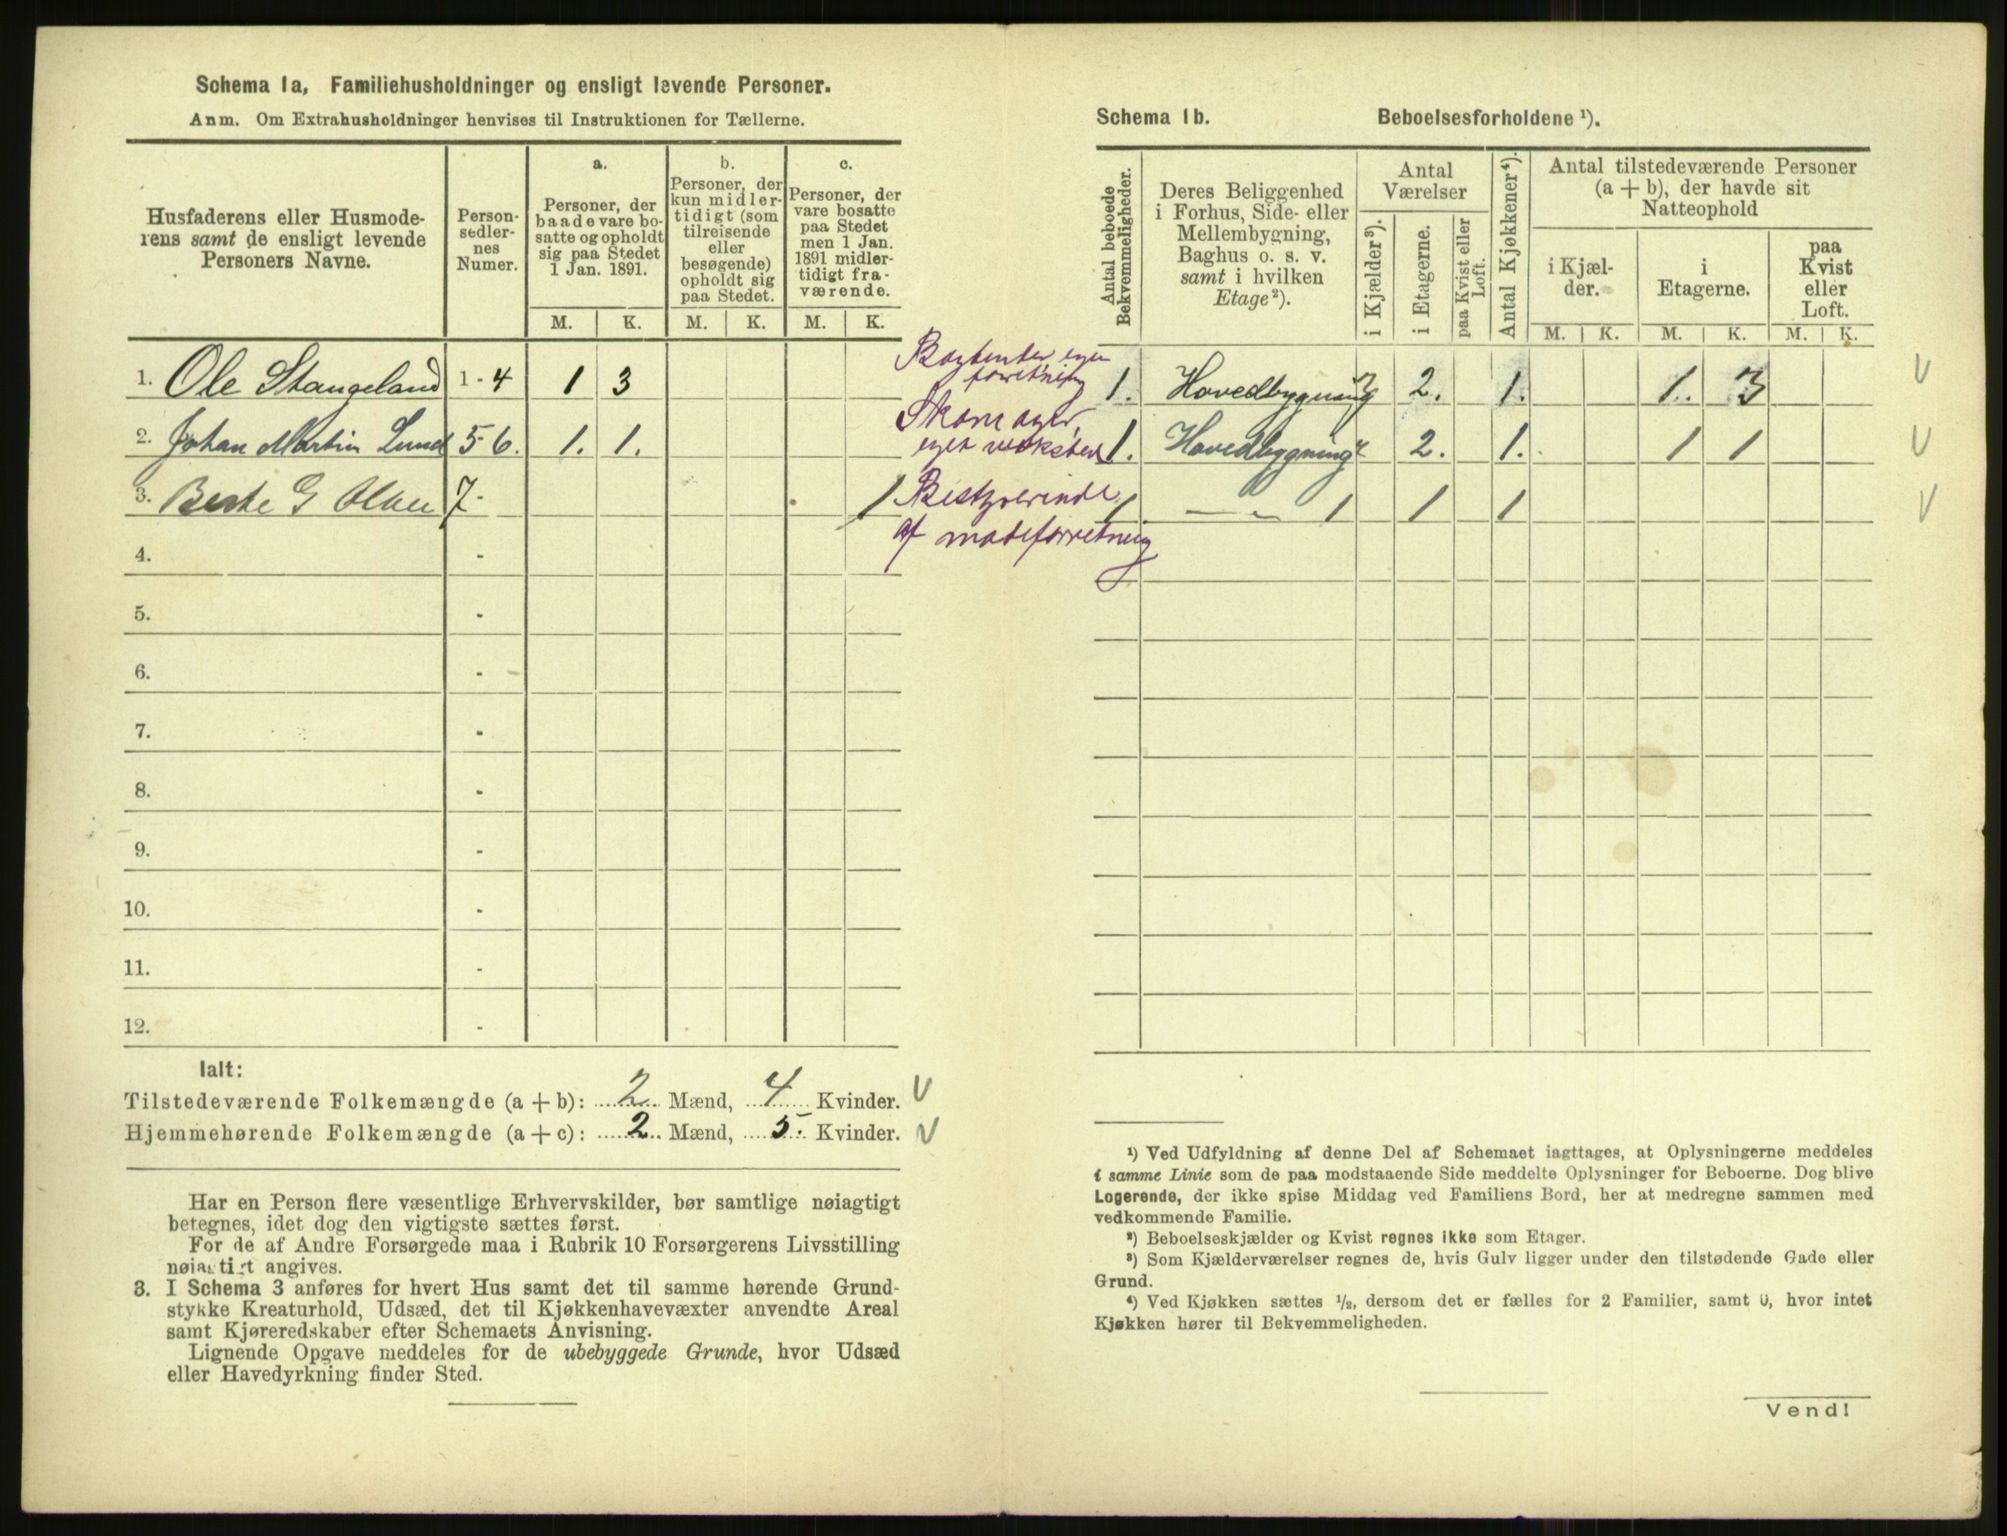 Schema 1a, Familiehusholdninger og ensligt levende Personer.
Anm. Om Extrahusholdninger henvises til Instruktionen for Tællerne.
Husfaderens eller Husmoderens samt de ensligt levende Personers Navne.
Personsedlernes Numer.
a.
Personer, der baade vare bosatte og opholdt sig paa Stedet 1 Jan. 1891.
b.
Personer, der kun midlertidigt (som tilreisende eller besøgende) opholdt sig paa Stedet.
c.
Personer, der vare bosatte paa Stedet men 1 Jan. 1891 midlertidigt fraværende.
M. K. M. K. M. K.
1. Ole Stangeland 1-4 1 3
2. Johan Martin Lund 5-6. 1. 1.
3. Berte G Olsen 7- 1
4. -
5. -
6. -
7. -
8. -
9. -
10. -
11. -
12. -
Ialt:
Tilstedeværende Folkemængde (a + b): 2 Mænd, 4 Kvinder. V
Hjemmehørende Folkemængde (a + c): 2 Mænd, 5. Kvinder. V
Har en Person flere væsentlige Erhvervskilder, bør samtlige nøiagtigt
betegnes, idet dog den vigtigste sættes først.
For de af Andre Forsørgede maa i Rubrik 10 Forsørgerens Livsstilling
nøiagtigt angives.
3. I Schema 3 anføres for hvert Hus samt det til samme hørende Grund-
stykke Kreaturhold, Udsæd, det til Kjøkkenhavevæxter anvendte Areal
samt Kjøreredskaber efter Schemaets Anvisning.
Lignende Opgave meddeles for de ubebyggede Grunde, hvor Udsæd
eller Havedyrkning finder Sted.
Schema 1b. Beboelsesforholdene ¹).
Antal beboede Bekvemmeligheder.
Deres Beliggenhed i Forhus, Side- eller Mellembygning, Baghus o. s. v. samt i hvilken Etage ²).
Antal Værelser
i Kjælder ³).
i Etagerne.
paa Kvist eller Loft.
Antal Kjøkkener ⁴).
Antal tilstedeværende Personer (a + b), der havde sit Natteophold
i Kjælder.
i Etagerne.
paa Kvist eller Loft.
M. K. M. K. M. K.
egen
forretning
1. Hovedbygning 2. 1. 1. 3 V
Skomager,
eget verksted
1. Hovedbygning 2. 1. 1 1 V
Bestyrerinde
1 — „ — 1 1 1 V
af modeforretning
¹) Ved Udfyldning af denne Del af Schemaet iagttages, at Oplysningerne meddeles
i samme Linie som de paa modstaaende Side meddelte Oplysninger for Beboerne. Dog blive
Logerende, der ikke spise Middag ved Familiens Bord, her at medregne sammen med
vedkommende Familie.
²) Beboelseskjælder og Kvist regnes ikke som Etager.
³) Som Kjælderværelser regnes de, hvis Gulv ligger under den tilstødende Gade eller
Grund.
⁴) Ved Kjøkken sættes ½, dersom det er fælles for 2 Familier, samt 0, hvor intet
Kjøkken hører til Bekvemmeligheden.
Vend!